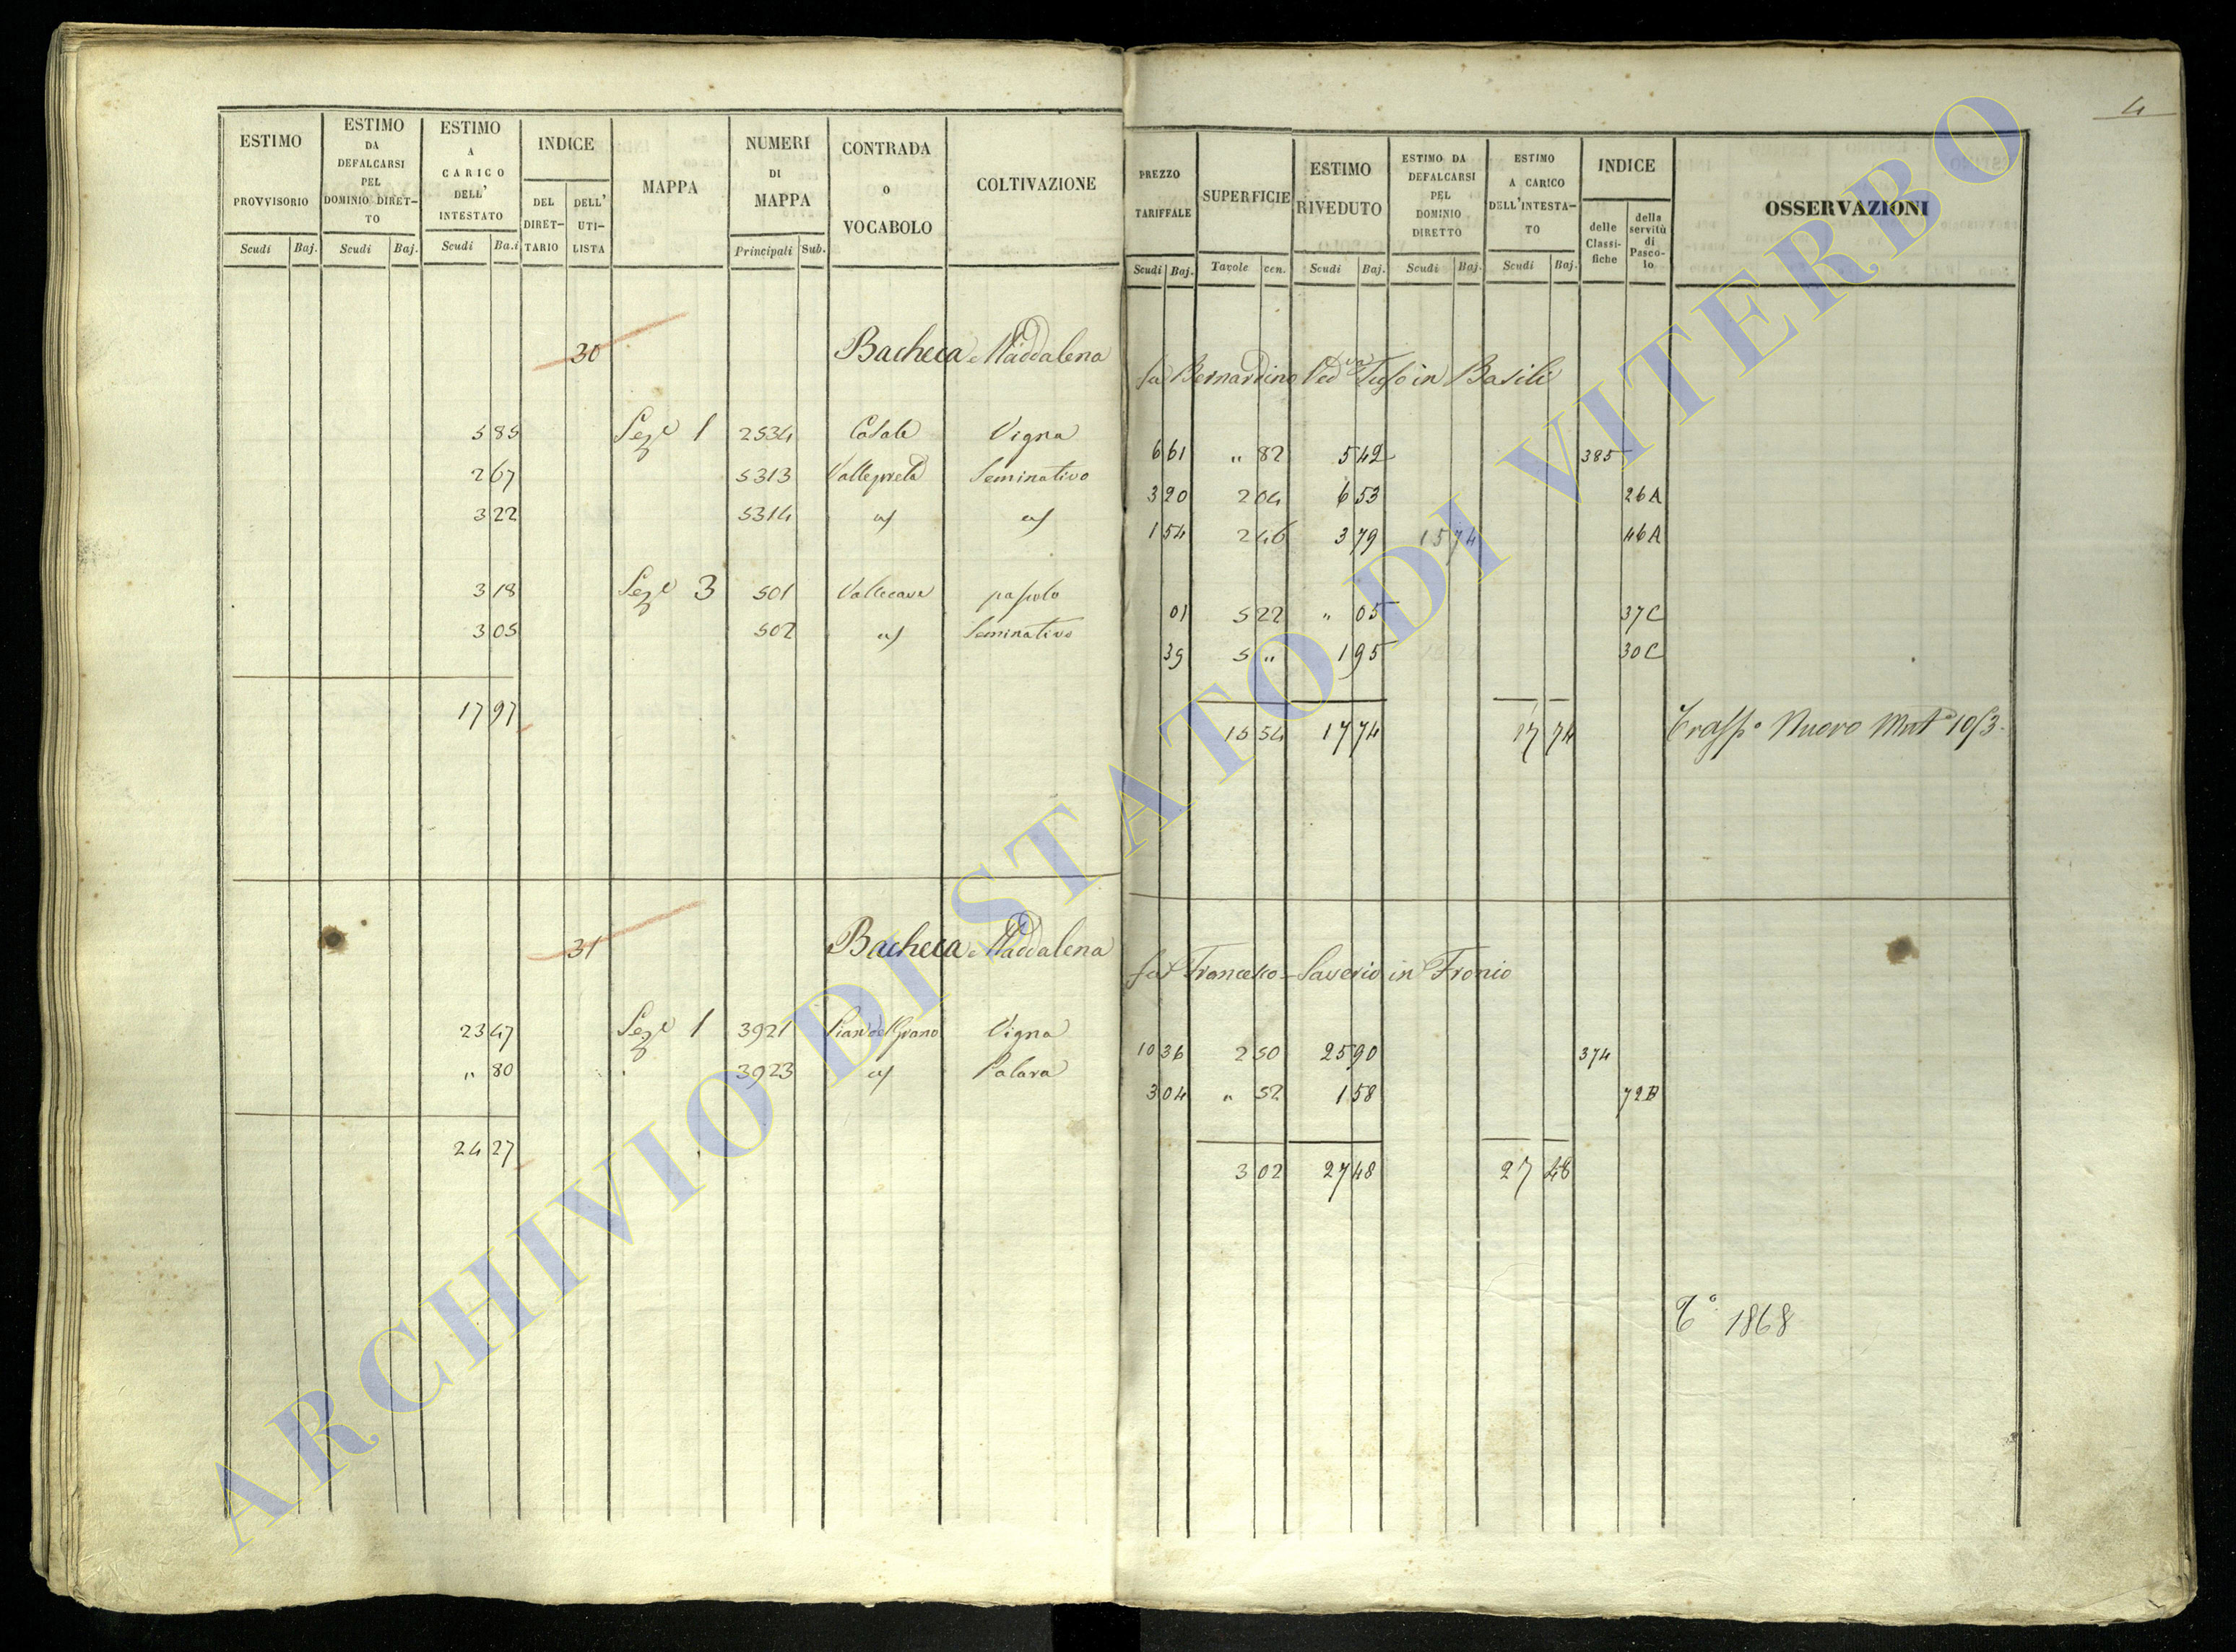 4
ESTIMO PROVVISORIO Scudi Baj.
ESTIMO DA DEFALCARSI PEL DOMINIO DIRET-TO Scudi Baj.
ESTIMO A CARICO DELL' INTESTATO Scudi Ba.i
INDICE DEL DIRET-TARIO DELL' UTI-LISTA
MAPPA
NUMERI DI MAPPA Principali Sub.
CONTRADA O VOCABOLO
COLTIVAZIONE
PREZZO TARIFFALE Scudi Baj.
SUPERFICIE Tavole cen.
ESTIMO RIVEDUTO Scudi Baj.
ESTIMO DA DEFALCARSI PEL DOMINIO DIRETTO Scudi Baj.
ESTIMO A CARICO DELL'INTESTA-TO Scudi Baj.
INDICE delle Classi-fiche della servitù di Pasco-lo
OSSERVAZIONI
30 Bacheca Maddalena fu Bernardino Ved va in Basili
5 85 Seze 1 2534 Casale Vigna 6 61 " 82 5 42 385
2 67 5313 Vallepreta Seminativo 3 20 2 04 6 53 26A
3 22 5314 1 54 2 46 3 79 15 74 46A
3 18 Seze 3 501 Vallecava pascolo 01 5 22 " 05 37C
3 05 502 Seminativo 39 5 " 1 95 30C
17 97 15 54 17 74 17 74 Traspo Nuovo 1053
31 Bacheca Maddalena fu Francesco Saverio in Fronio
23 47 Seze 1 3921 Pian del Grano Vigna 10 36 2 50 25 90 374
" 80 3923 Palara 3 04 " 52 1 58 72B
24 27 3 02 27 48 27 48
To 1868
ARCHIVIO DI STATO DI VITERBO